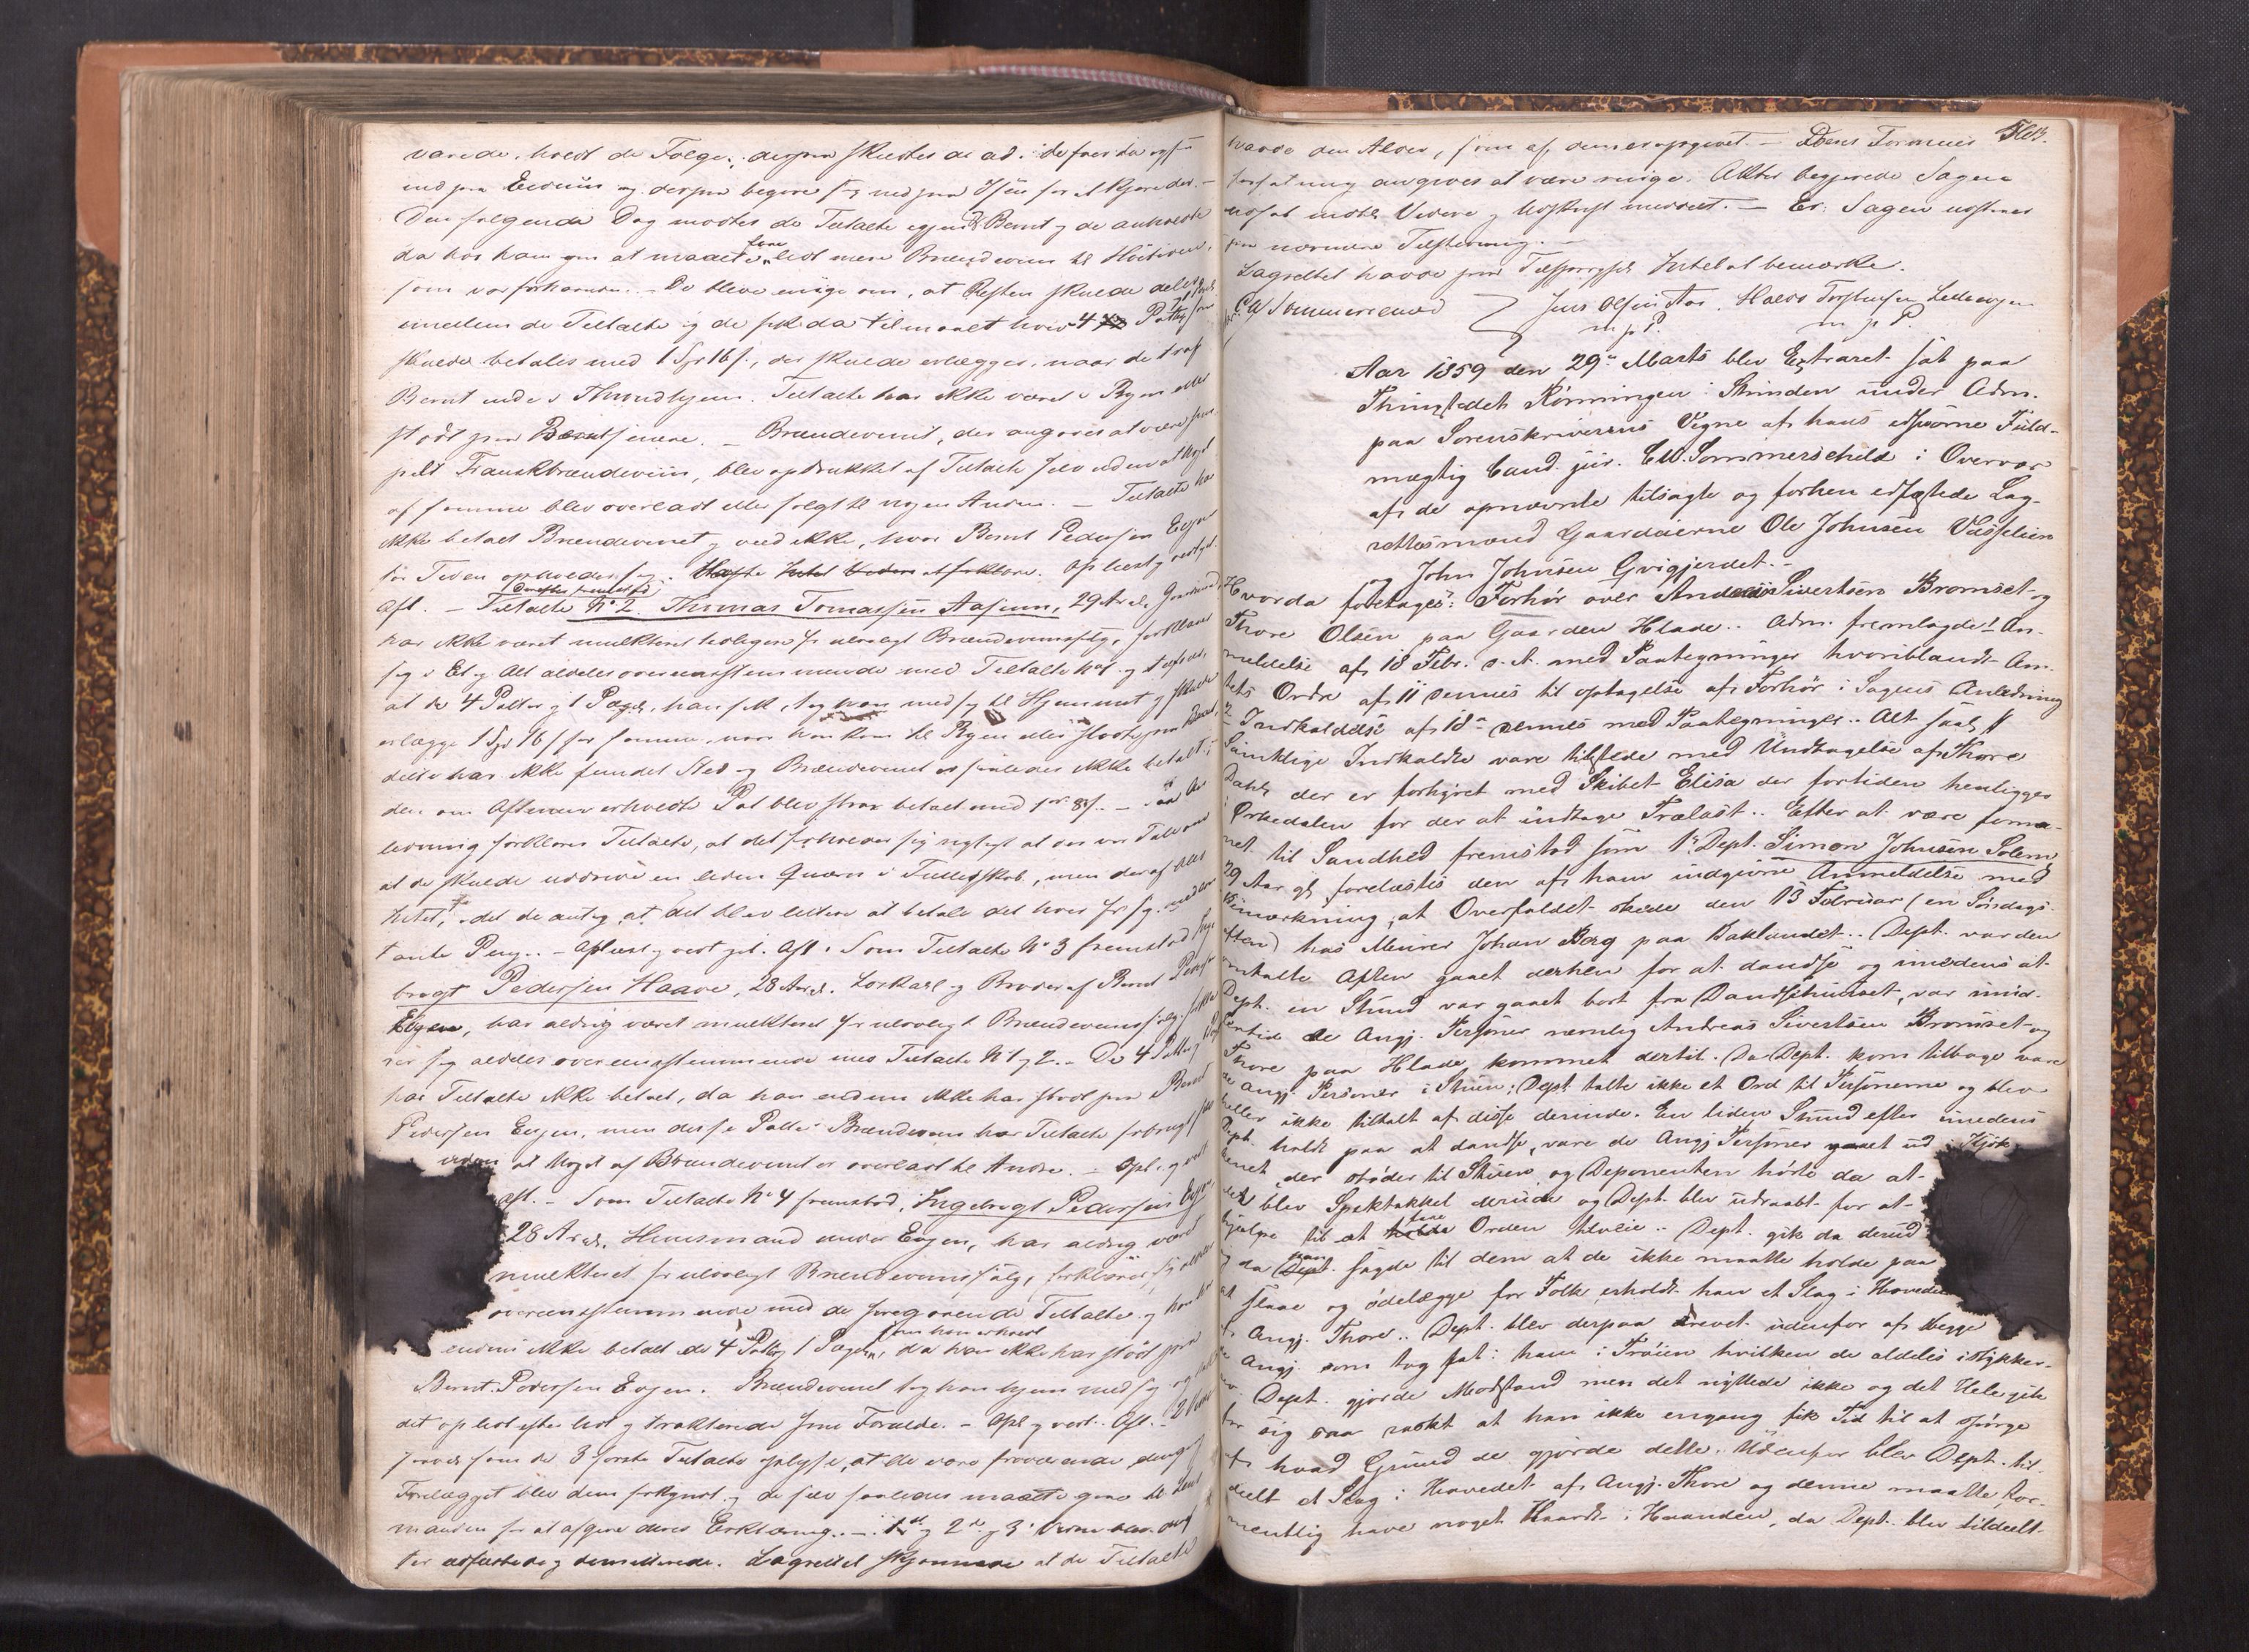 varede, hvert de Følge; derpaa skiltes de ad.
ind paa Evenuus og derpaa begave sig ned paa Isen for at kjøre der. -
Den følgende Dag mødtes de Tiltalte igjen Bernt og de anholdte
da hos ham om at maatte faae lidt mere Brændeviin til Høitiden,
som var forhaanden. - De bleve enige om, at Resten skulde deles
imellem de Tiltalte og de fik da tilmaalt hver 4 Potter
skulde betales med 1 Spd 16 s., der skulde erlægges, naar de traf
Bernt inde i Throndhjem. Tiltalte har ikke været i Byen eller
stødt paa Bernt senere. - Brændevinet, der angives at være
Franskbrændeviin, blev opdrukket af Tiltalte selv uden at Noget
af samme blev overladt eller solgt til nogen Anden. - Tiltalte har
ikke betalt Brændevinet og veed ikke, hvor Bernt Pedersen Evjen
for Tiden opholder sig. Oplæst og vedtget.
Aft. - Derefter fremstod Tiltalte No 2 Thomas Tomassen Aasmun, 29 Ar gl.
har ikke været mulkteret tidligere for ulovligt Brændevinssalg, forklarer
sig i Et og Alt aldeles overensstemmende med Tiltalte No 1 og
at de 4 Potter og 1 Pægel, han fik, tog han med sig til Hjemmet og skulde
erlægge 1 Spd 16 s for samme, naar han kom til Byen eller stødte paa Bernt,
dette har ikke fundet Sted og Brændevinet er saaledes ikke betalt;
den om Aftenen erholdte Pot blev strax betalt med 8 s. -
ledning forklarer Tiltalte, at det forholder sig rigtigt at der var Tale om
at de skulde uddrive en liden Qværn i Fællesskab, men deraf blev
Intet, idet de antog, at det blev lettere at betale det hver for sig
Penge. - Oplæst og vedtget. Aft. Som Tiltalte No 3 fremstod Inge-
brogt Pedersen Haave, 28 Aar gl. Løskarl og Broder af Bernt Pedersen
Evjen, har aldrig været mulkteret for ulovligt Brændevinssalg,
rer sig aldeles overeensstemmende med Tiltalte No 1 og 2. - De 4 Potter
har Tiltalte ikke betalt, da han endnu ikke har stødt paa Bernt
Pedersen Evjen, men disse Potter Brændeviin har Tiltalte forbrugt
uden at Noget af Brændevinet er overladt til Andre. - Opl. og vedt
aft. - Som Tiltalte No 4 fremstod, Ingebrogt Pedersen Evjen,
28 Ar gl. Huusmand under Evjen, har aldrig været
mulkteret for ulovligt Brændevinssalg, forklarer sig
overeensstemmende med de foregaaende Tiltalte og har
endnu ikke betalt de 4 Potter 1 Pægel, som han erholdt da han ikke har stødt paa
Bernt Pedersen Evjen. Brændevinet tog han hjem med sig
det op lidt efter lidt og trakterede sine Forældre. - Opl og vedt. Aft. -
som de 3 første Tiltalte oplyste, at de vare fraværende, dengang
Forelægget blev dem forkyndt og de selv saaledes maatte gaae til Lens-
manden for at afgive deres Erklæring. - 1ste og 2de og 3die Vidne blev
ter edfæstede og dimitterede. Lagrettet skjønnede at de Tiltalte
havde den Alder, som af dem er opgivet. - Deres Formues
forfatning angives at være ringe. Aktor begjerede Sagen
udsat indtil Videre og Udskrift meddelt. - Er. Sagen udsættes
paa nærmere Tilstevning. -
Lagrettet havde paa Tilspørgsel Intet at bemærke.
C. W. Sommerschield Jens Olsen Aas. Halvor Torstensen
m. p. P. m. p. P.
Aar 1859 den 29de Marts blev Extraret sat paa
Thingstedet Rønningen i Strinden under Adm.
paa Sorenskriverens Vegne af hans edsvorne Fuld-
mægtig Cand. jur. C. W. Sommerschield i Overvær
af de opnævnte tilsagte og forhen edfæstede Lag-
rettesmænd Gaardeierne Ole Johnsen Vasselien
og John Johnsen Gvigjerdet. -
Hvorda foretages: Forhør over Andreas Sivertsen Bromset og
Thore Olsen paa Gaarden Hlade. - Adm. fremlagde 1 An-
meldelse af 18 Febr. d. A. med Paategninger hvoriblandt Am-
tets Ordre af 11 dennes til optagelse af Forhør i Sagens Anledning
2 Indkaldelse af 18de dennes med Paategninger. - Alt saal
Samtlige Indkaldte vare tilstede med Undtagelse af Thore
Dahl, der er forhyret med Skibet Elisa der fortiden henligger
i Ørkedalen for der at indtage Trælast. - Efter at være forma-
net til Sandhed fremstod som 1ste Dept. Simon Johnsen Solem
29 Aar gl, forelæstes den af ham indgivne Anmeldelse med
Bemærkning, at Overfaldet skede den 13 Februar (en Søndags
aften) hos Murer Johan Berg paa Baklandet. - Dept. var den
omtalte Aften gaaet derhen for at dandse og imedens at
Dept. en Stund var gaaet bort fra Dandsehuuset, var imid-
lertid de Angj. Personer nemlig Andreas Sivertsen Bromset og
Thore paa Hlade kommet dertil. Da Dept. kom tilbage vare
de angj. Personer i Stuen; Dept. talte ikke et Ord til Personerne og blev
heller ikke tiltalt af disse derinde. En liden Stund efter imedens
Dept. holdt paa at dandse, vare de Angj Personer gaaet ud i Kjøk-
kenet der støder til Stuen og Deponenten hørte da at
det blev Spektakkel derude og Dept. blev udraabt for at
hjælpe til at faae Orden tilveie. - Dept. gik da derud
og da han sagde til dem at de ikke maatte holde paa
at slaae og ødelægge for Folk erholdt han et Slag i Hovedet
af Angj. Thore. - Dept. blev derpaa drevet udenfor af begge
de Angj. som tog fat i ham i Trøien hvilken de aldeles istykker-
rev. Dept. gjorde Modstand men det nyttede ikke og det Hele gik
for sig saa raskt at han ikke engang fik Tid til at spørge
af hvad Grund de gjorde dette. Udenfor blev Dept. til-
deelt et Slag i Hovedet af Angj. Thore og denne maatte for-
mentlig have noget Haardt i Haanden, da Dept. blev tildeelt